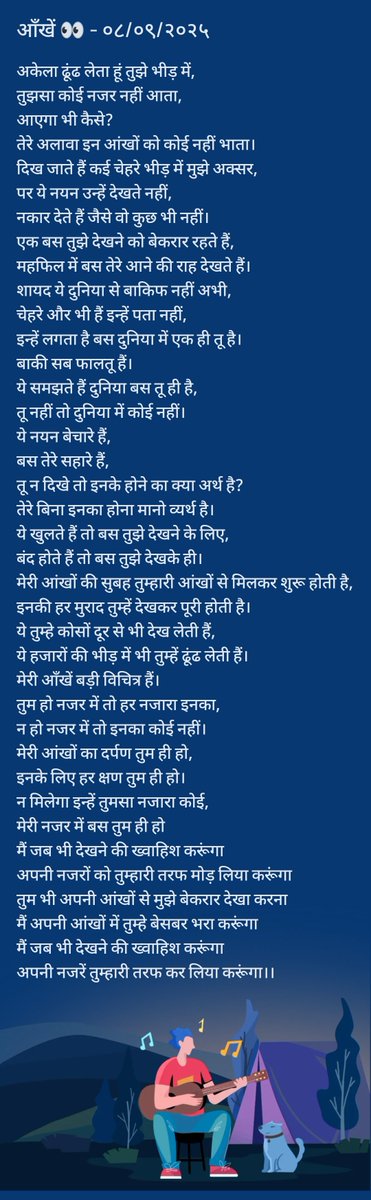 आँखें 👀 - ०८/०९/२०२५
अकेला ढूंढ लेता हूं तुझे भीड़ में,
तुझसा कोई नजर नहीं आता,
आएगा भी कैसे?
तेरे अलावा इन आंखों को कोई नहीं भाता।
दिख जाते हैं कई चेहरे भीड़ में मुझे अक्सर,
पर ये नयन उन्हें देखते नहीं,
नकार देते हैं जैसे वो कुछ भी नहीं।
एक बस तुझे देखने को बेकरार रहते हैं,
महफिल में बस तेरे आने की राह देखते हैं।
शायद ये दुनिया से बाकिफ नहीं अभी,
चेहरे और भी हैं इन्हें पता नहीं,
इन्हें लगता है बस दुनिया में एक ही तू है।
बाकी सब फालतू हैं।
ये समझते हैं दुनिया बस तू ही है,
तू नहीं तो दुनिया में कोई नहीं।
ये नयन बेचारे हैं,
बस तेरे सहारे हैं,
तू न दिखे तो इनके होने का क्या अर्थ है?
तेरे बिना इनका होना मानो व्यर्थ है।
ये खुलते हैं तो बस तुझे देखने के लिए,
बंद होते हैं तो बस तुझे देखके ही।
मेरी आंखों की सुबह तुम्हारी आंखों से मिलकर शुरू होती है,
इनकी हर मुराद तुम्हें देखकर पूरी होती है।
ये तुम्हे कोसों दूर से भी देख लेती हैं,
ये हजारों की भीड़ में भी तुम्हें ढूंढ लेती हैं।
मेरी आँखें बड़ी विचित्र हैं।
तुम हो नजर में तो हर नजारा इनका,
न हो नजर में तो इनका कोई नहीं।
मेरी आंखों का दर्पण तुम ही हो,
इनके लिए हर क्षण तुम ही हो।
न मिलेगा इन्हें तुमसा नजारा कोई,
मेरी नजर में बस तुम ही हो
मैं जब भी देखने की ख्वाहिश करूंगा
अपनी नजरों को तुम्हारी तरफ मोड़ लिया करूंगा
तुम भी अपनी आंखों से मुझे बेकरार देखा करना
मैं अपनी आंखों में तुम्हे बेसबर भरा करूंगा
मैं जब भी देखने की ख्वाहिश करूंगा
अपनी नजरें तुम्हारी तरफ कर लिया करूंगा।।